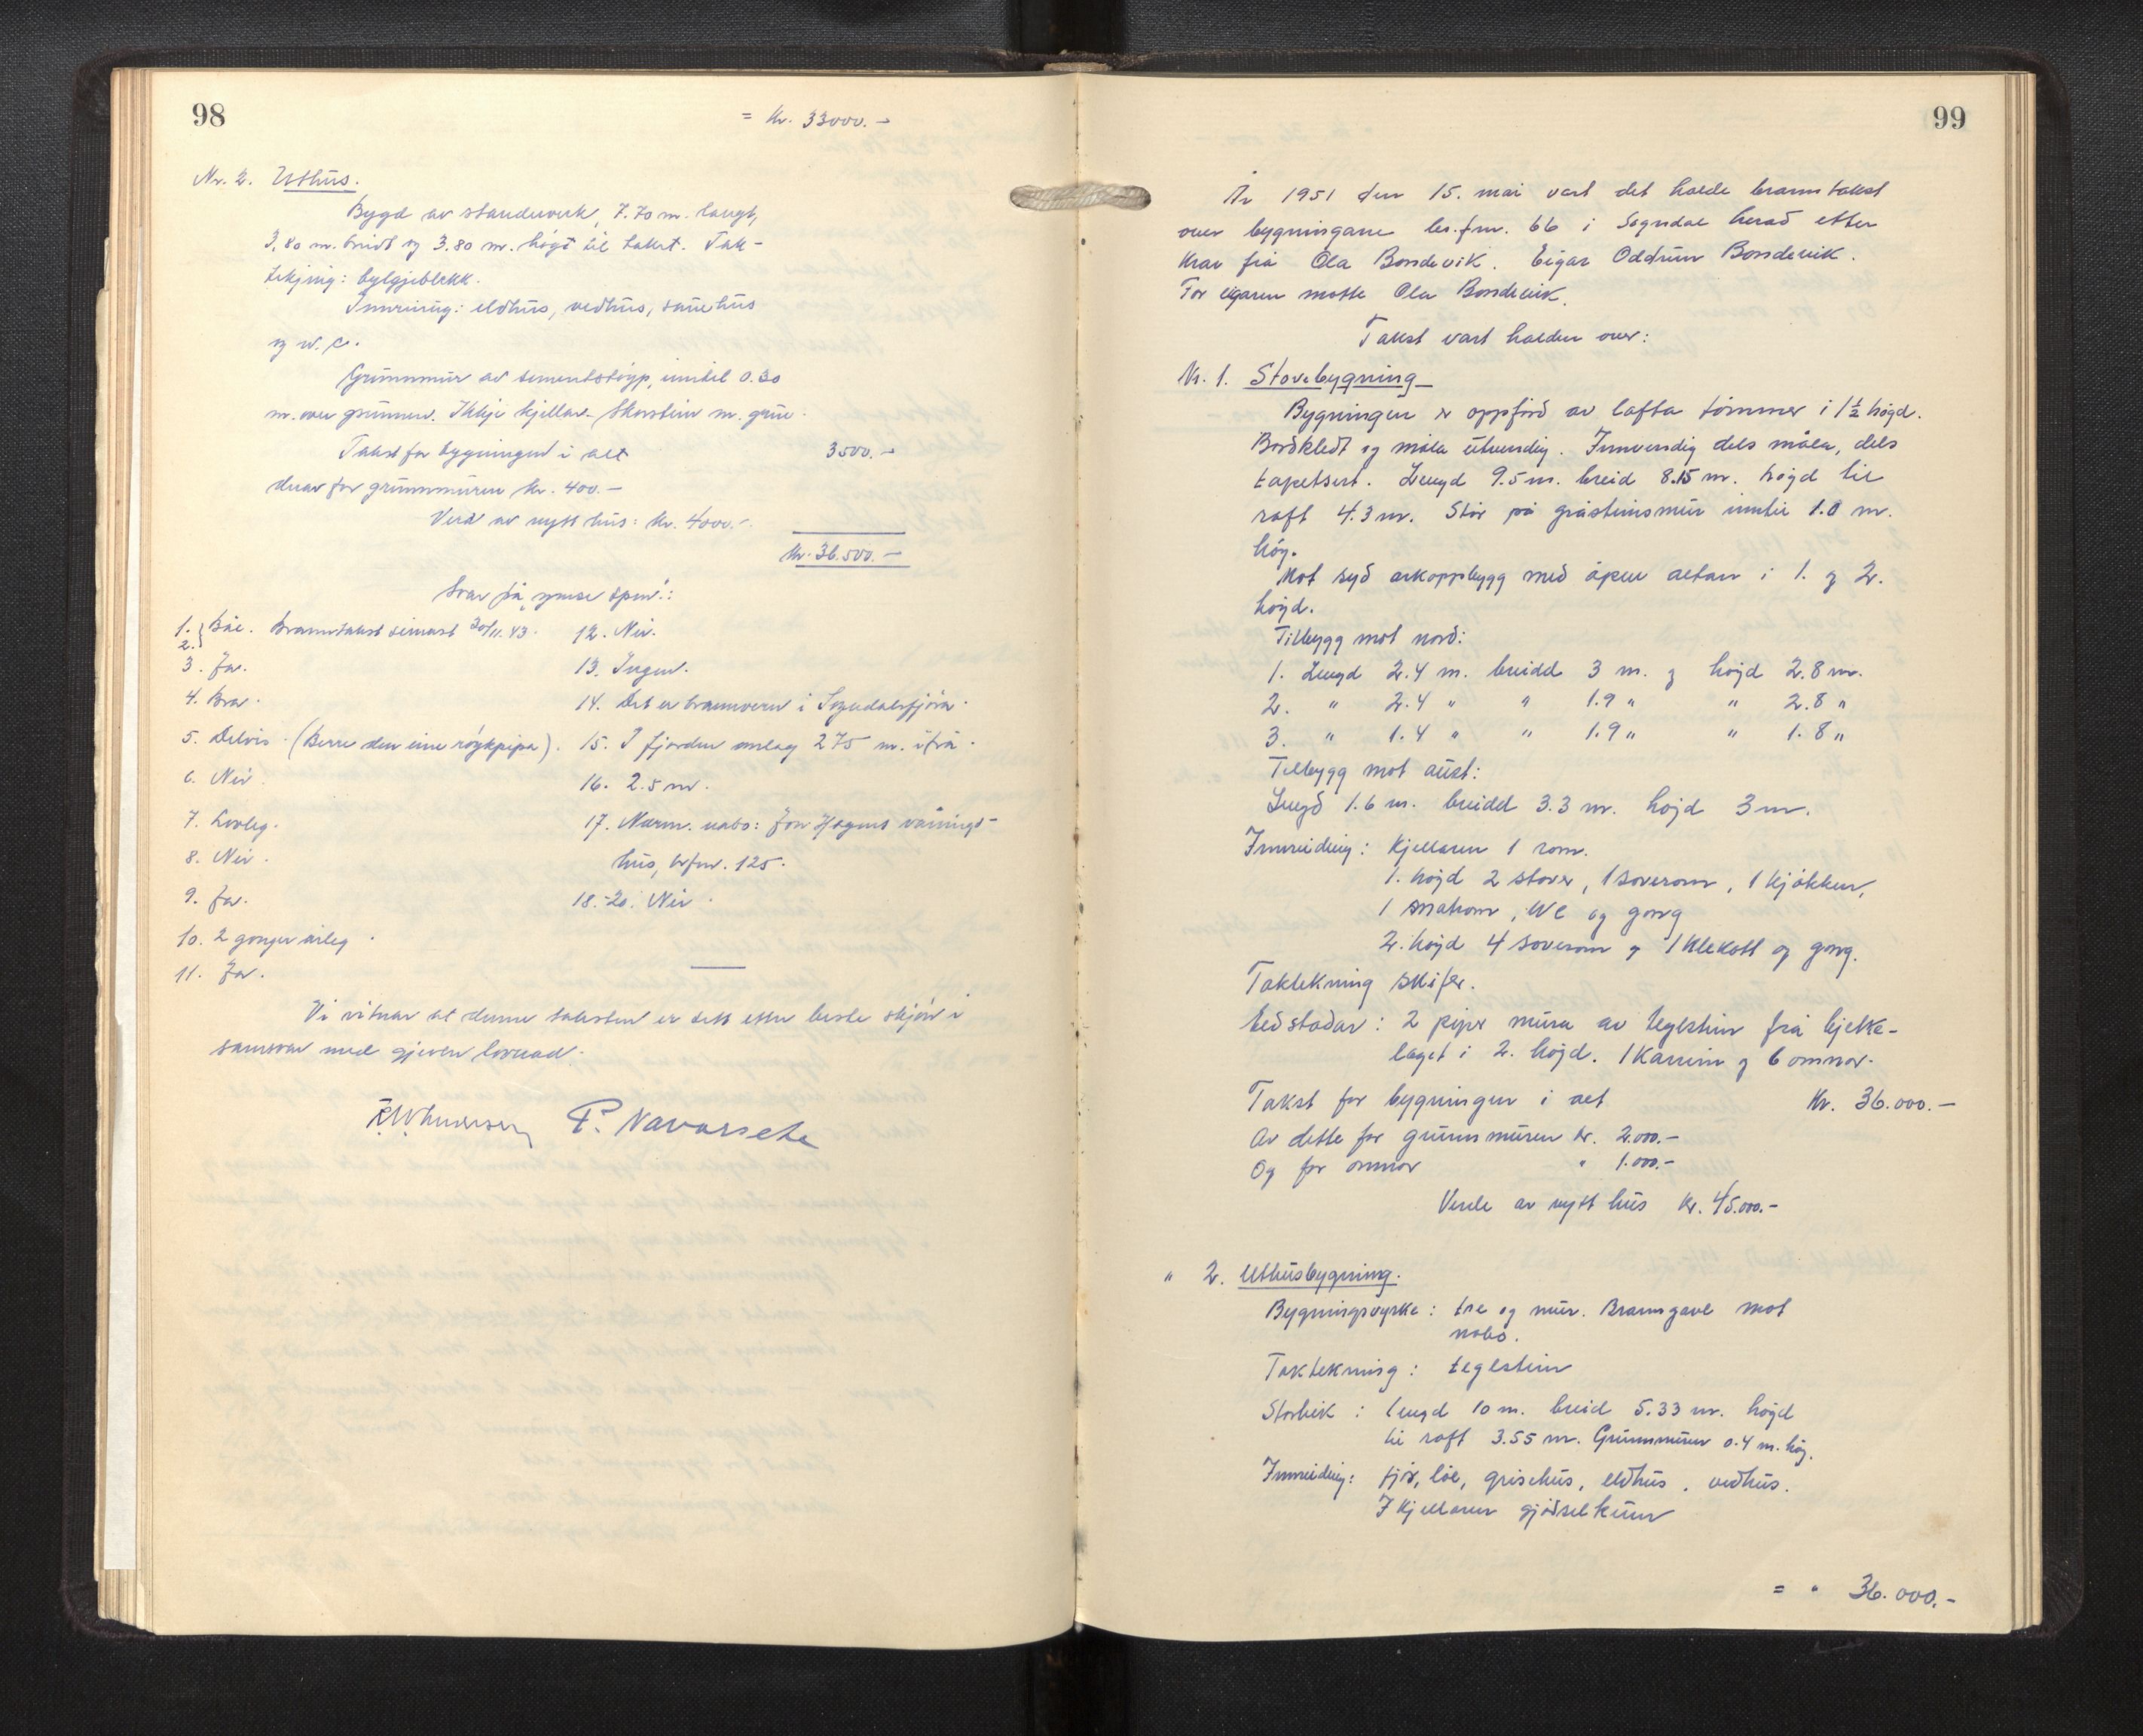 98
= Kr. 33000.-
Nr. 2. Uthus.
Bygd av standverk, 7.70 m. langt,
3,80 m. bridt og 3.80 m. högt til takset. Tak-
tekjnig: bylgjeblekk.
Innreiing: eldhus, vedhus, sauehus
og w.c.
Grunnmur av sementstöyp, inntil 0.30
m. over grunnen. Ikkje kjellar. Skorstein m. grue.
Takst for bygningen i alt 3500.-
derav for grunnmuren kr. 400.-
Verd av nytt hus: kr. 4000.-
Kr. 36.500.-
Svar på „ymse spm.":
1. 2.} Båe. Branntakst simast 30/11.43.
3. Ja.
4. Bra.
5. Delvis. (Berre den eine röykpipa).
6. Nei.
7. Lovleg.
8. Nei.
9. Ja.
10. 2 gonger årleg.
11. Ja.
12. Nei.
13. Ingen.
14. Det er brannvern i Sogndalsfjöra.
15. I fjorden omlag 275 m. ifrå.
16. 2.5 m.
17. Nærm. nabo: Jon Hagens vånings-
hus, br.fnr. 125.
18.-20. Nei.
Vi vitnar at denne taksten er sett etter beste skjön i
samsvar med gjeven lovnad.
P. Navarsete
99
År 1951 den 15. mai vart det halde branntakst
over bygningane br.fnr. 66 i Sogndal herad etter
krav frå Ola Bondevik. Eigar Oddrun Bondevik.
For eigaren møtte Ola Bondevik.
Takst vart halden over:
Nr. 1. Stovebygning
Bygningen er oppförd av lafta tömmer i 1½ högd.
Bordkledt og måla utvendig. Innvendig dels måla, dels
tapetsert. Lengd 9.5 m. breid 8.15 m. högd til
raft 4.3 m. Står på gråsteinsmur inntil 1.0 m.
hög.
Mot syd arkoppbygg med åpen altan i 1. og 2.
högd.
Tilbygg mot nord:
1. Lengd 2.4 m. breidd 3 m. og högd 2.8 m.
2. " 2.4 " " 1.9 " " 2.8 "
3. " 1.4 " " 1.9 " " 1.8 "
Tilbygg mot aust:
Lengd 1.6 m. breidd 3.3 m. högd 3 m.
Innreidnig: Kjellaren 1 rom.
1. högd 2 stover, 1 soverom, 1 kjökken,
1 matrom, WC og gong
2. högd 4 soverom og 1 klekott og gong.
Taktekning skifer.
Eldstadar: 2 piper mura av teglstein frå bjelke-
laget i 2. högd. 1 kamin og 6 omnar.
Takst for bygningen i alt Kr. 36.000.-
Av dette for grunnmuren kr. 2.000.-
Og for omnar " 1.000.-
Verde av nytt hus Kr. 45.000.-
" 2. Uthusbygning.
Bygningsvyrke: tre og mur. Branngavl mot
nabo.
Taktekning: teglstein
Storleik: lengd 10 m. breid 5.33 m. högd
til raft 3.55 m. Grunnmuren 0.4 m. hög.
Innreidnig: fjös, löe, grisehus, eldhus, vedhus.
I kjellaren gjödselkum
= " 36.000.-